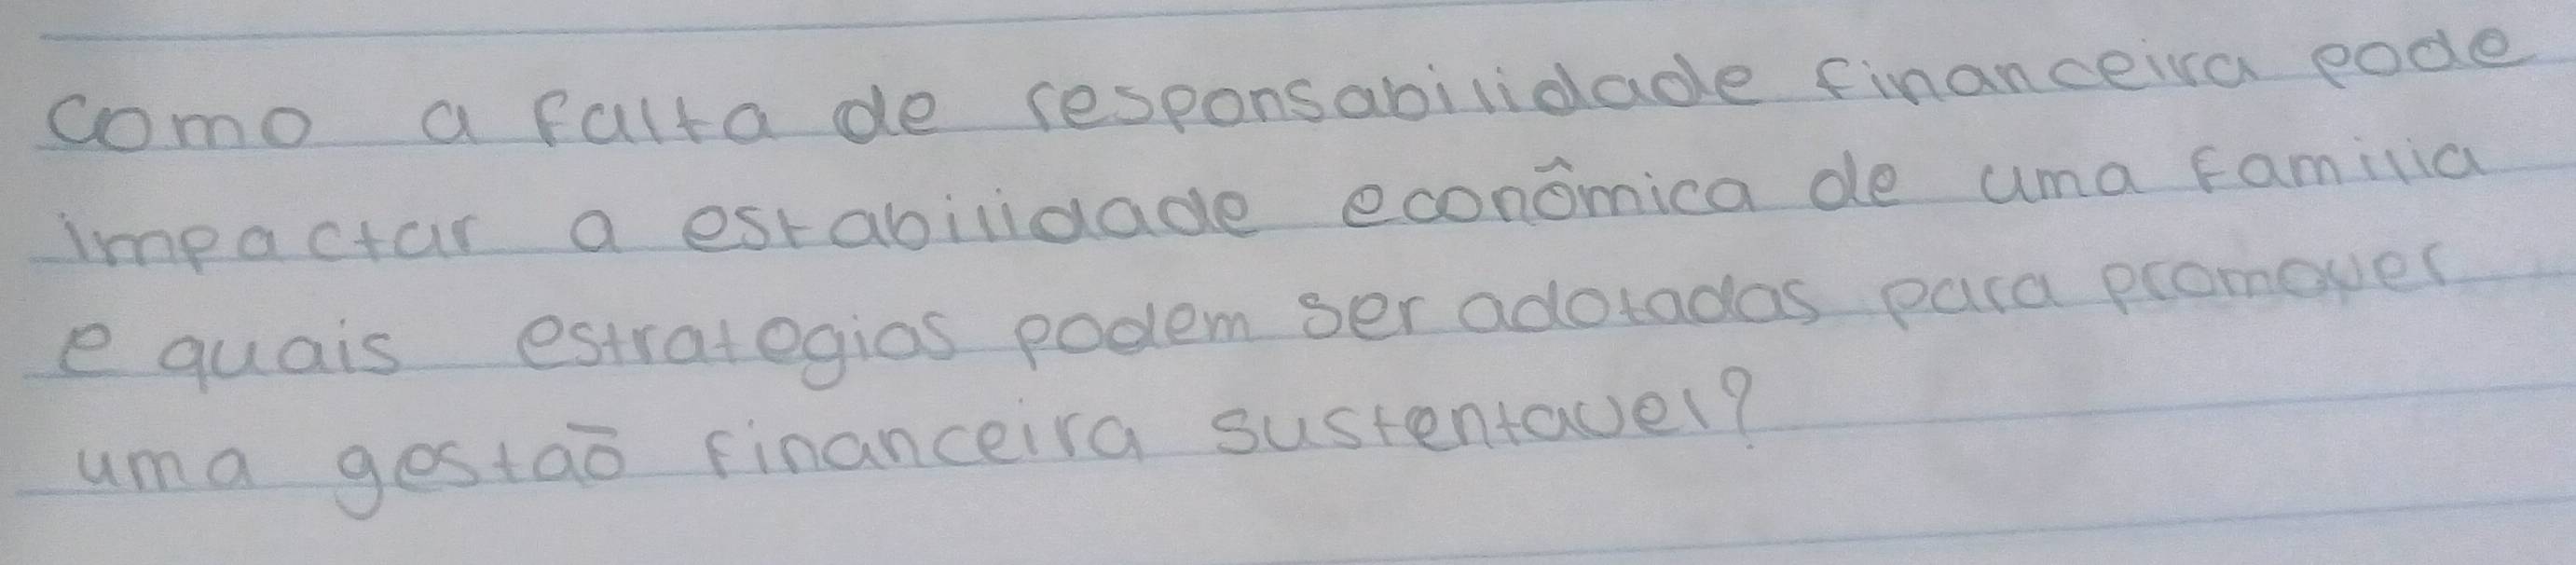 como a falta de responsabilidade financeira pode
impactar a estabilidade econômica de uma familia
e quais estrategias podem ser adotadas para promover
uma gestaõ financeira sustentavel?